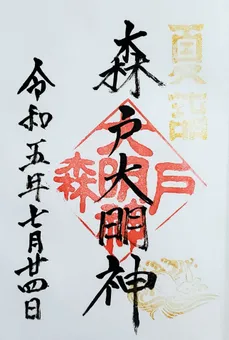 夏詣
森戸大明神
森戸大明神
令和五年七月廿四日